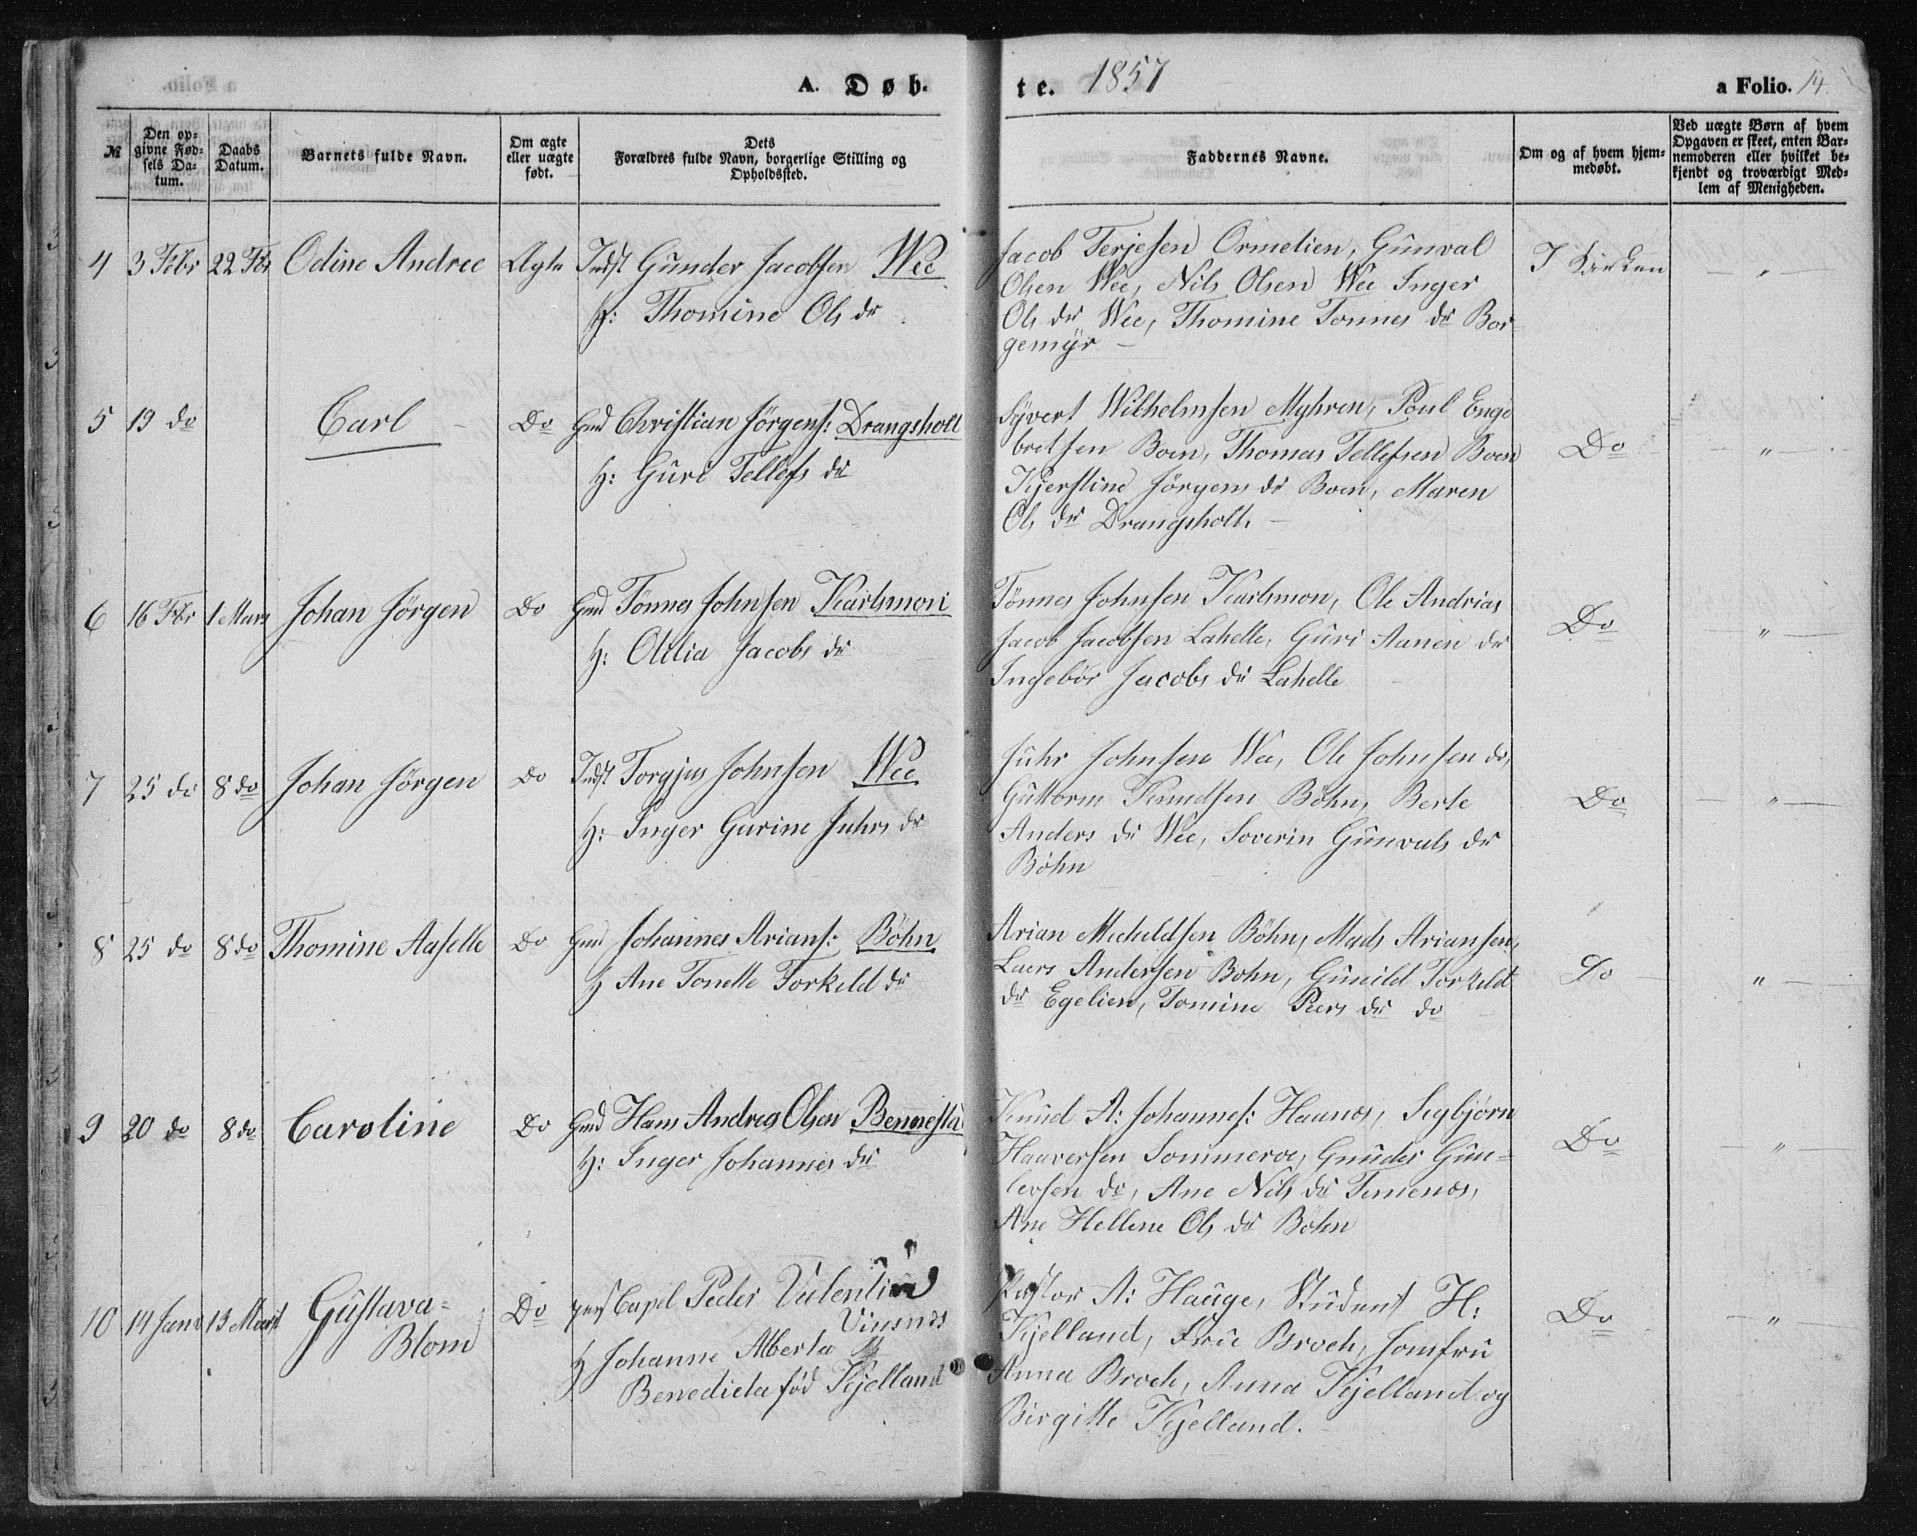 A. Døb.
te. 1857
a Folio. 14.
№
Den op-
givne Fød-
sels Da-
tum.
Daabs
Datum.
Barnets fulde Navn.
Om ægte
eller uægte
født.
Dets
Forældres fulde Navn, borgerlige Stilling og
Opholdssted.
Faddernes Navne.
Om og af hvem hjem-
medøbt.
Ved uægte Børn af hvem
Opgaven er skeet, enten Bar-
nemoderen eller hvilket be-
kjendt og troværdigt Med-
lem af Menigheden.
4 3 Febr 22 Fbr Odine Andree Ægte Indst Gunder Jacobsen Wee
H: Thomine Ols dr
Jacob Terjesen Ormelien, Gunval
Olsen Wee, Nils Olsen Wee Inger
Ols dr Wee, Thomine Tonnes dr Bor
gemyr —
I Kirken — " —
5 19 do Carl — Do Gmd Christian Jörgens: Drangsholt
H: Guri Tellefs dr
Syvert Wilhelmsen Myhren, Poul Enge
bretsen Boen, Thomas Tellefsen Boen
Kjerstine Jörgens dr Boen, Maren
Ols dr Drangsholt. —
Do — " —
6 16 Fbr 1 Mars Johan Jörgen Do Gmd Tönnes Johnsen Karlsmon
H: Otilia Jacobs dr
Tönnes Johnsen Karlsmon, Ole Andrias
Jacob Jacobsen Lahelle, Guri Aanen dr
Ingebör Jacobs dr Lahelle
Do — " —
7 25 do 8 do Johan Jörgen Do Indst Torgjus Johnsen Wee
H: Inger Gurine Juhrs dr
Juhr Johnsen Wee, Ole Johnsen do,
Guttorm Knudsen Böhn, Berte
Anders dr Wee, Soverin Gunvals dr
Böhn
Do — " —
8 25 do 8 do Thomine Aaselle Do Gmd Johannes Arians: Böhn
H Ane Tonette Torkeld dr
Arian Micheldsen Böhn, Mads Ariansen,
Laers Andersen Bohn, Gunild Torkeld
dr Egelien, Tomine Peers dr do
Do — " —
9 20 do 8 do Caroline Do Gmd Hans Andreas Olsen Bennesta
H: Inger Johannes dr
Knud A: Johannes: Haanes, Segbjörn
Haaversen Sommeroe, Gunder Gun-
lersen do, Ane Nils dr Temenes,
Ane Hellene Ols dr Böhn
Do — " —
10 14 Janr 13 Marst Gustava-
Blom
Do pers Capel Peder Valentin
Viusnes
H Johanne Alberta
Benedicta föd Kjelland
Pastor A: Hauge, Student H:
Kjelland, Frue Broch, Jomfru
Anna Broch, Anna Kjelland og
Birgitte Kjelland.
Do — " —